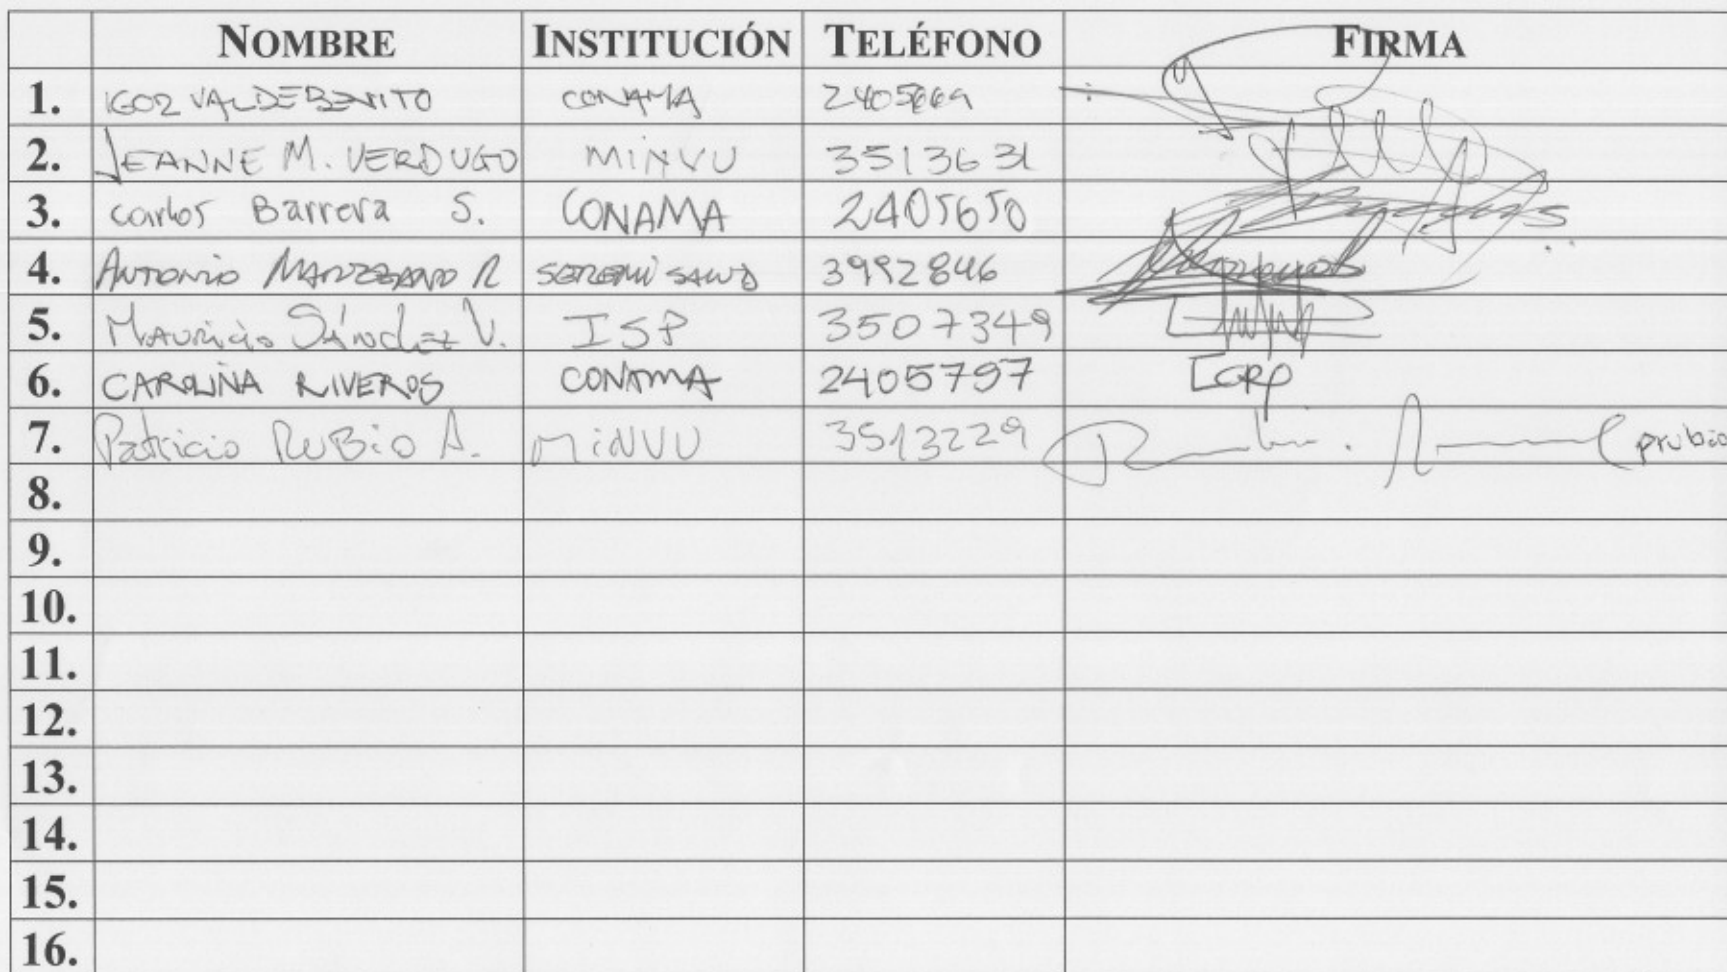 NOMBRE INSTITUCIÓN TELÉFONO FIRMA
1. IGOR VALDEBENITO CONAMA
2. JEANNE M. VERDUGO MINVU 3513631
3. Carlos Barrera S. CONAMA 2405650
4. ANTONIO MANZZANO R SEREMI SALUD 3992846
5. Mauricio Sánchez V. ISP 3507349
6. CAROLINA RIVEROS CONAMA 2405797
7. Patricio RUBio A. MiNVU 3513229 (prubio
8.
9.
10.
11.
12.
13.
14.
15.
16.